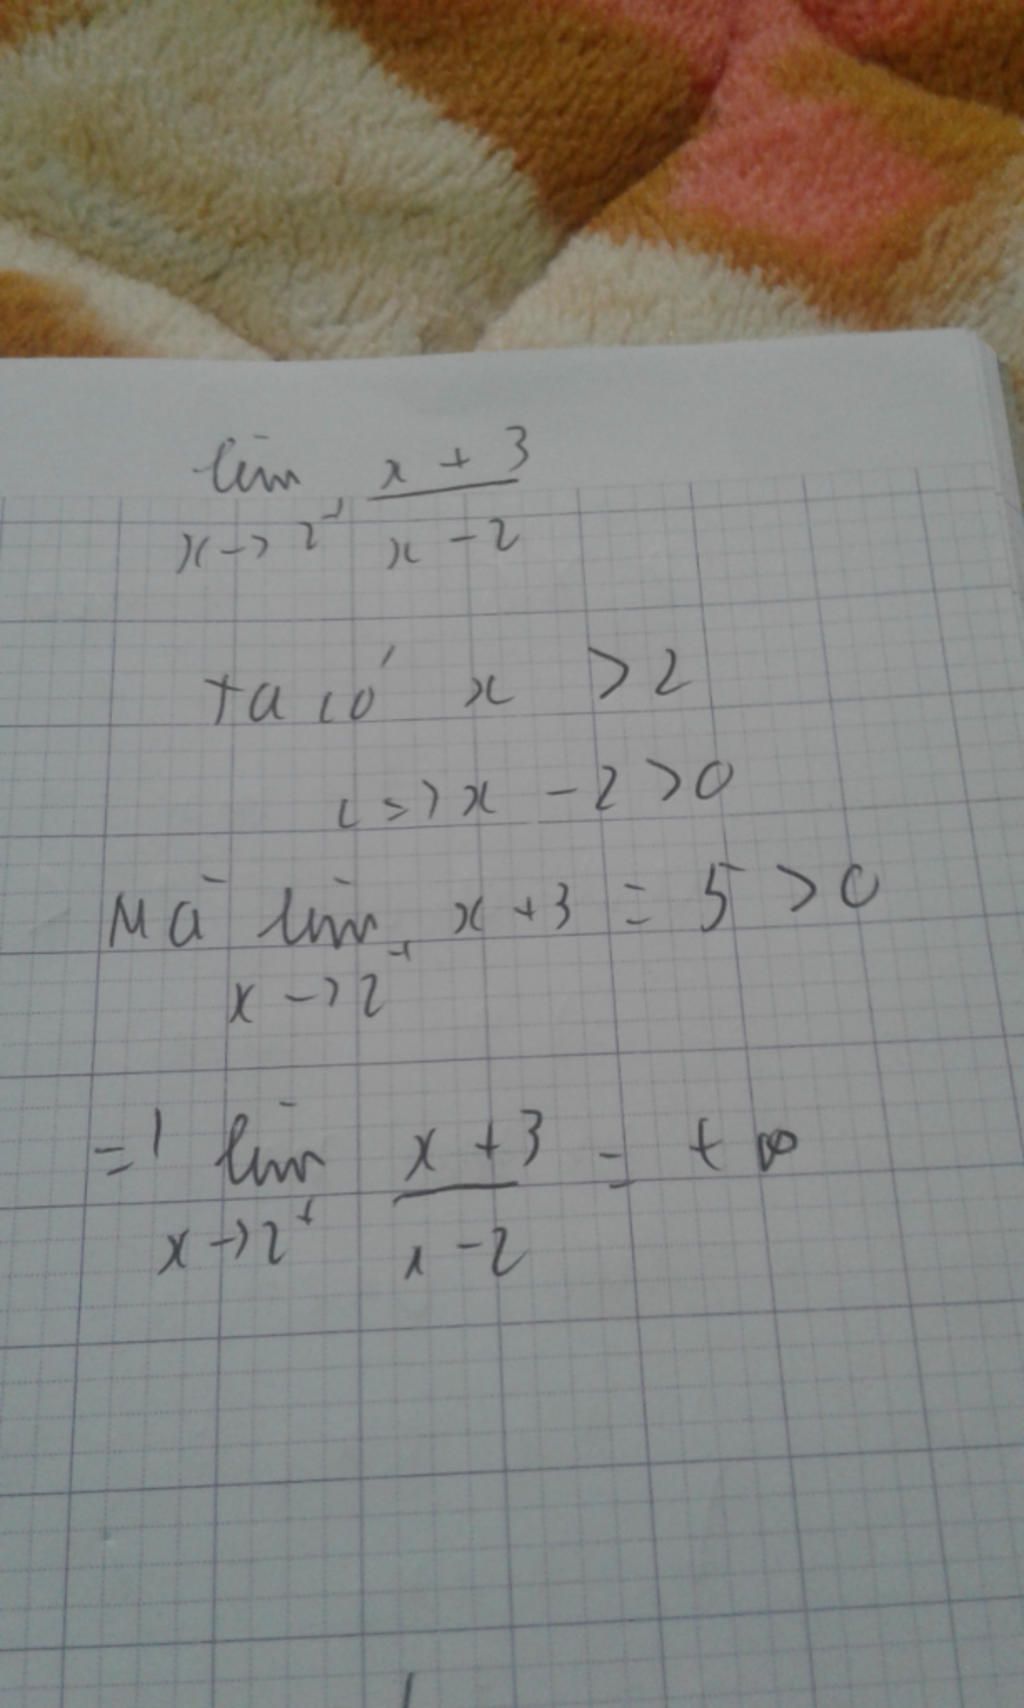 lim x→2⁺ (x + 3)/(x - 2)
ta có x > 2
<=> x - 2 > 0
Mà lim x→2⁺ x + 3 = 5 > 0
=> lim x→2⁺ (x + 3)/(x - 2) = + ∞